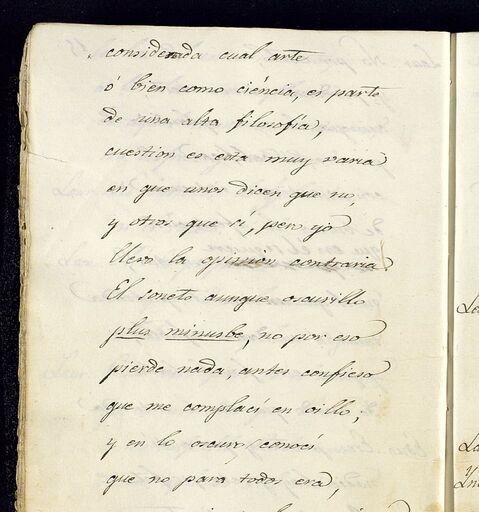 considerada cual arte
ó bien como ciéncia, es parte
de una alta filosofía,
cuestion es esta muy varia
en que unos dicen que no,
y otros que sí, pero yo
llevo la opinion contraria.
El soneto aunque oscurillo
plus minusbe, no por eso
pierde nada, antes confieso
que me complací en oillo;
y en lo oscuro conocí
que no para todos era,
La
Yn